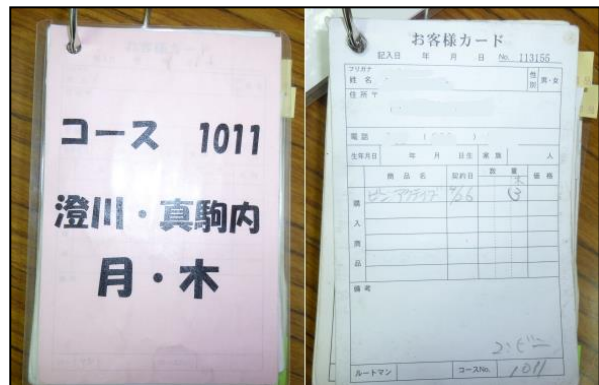 コース 1011
澄川・真駒内
月・木
お客様カード
記入日 年 月 日 No. 113155
フリガナ
姓名
性別 男・女
住所 〒
電話 ( )
生年月日 年 月 日生 家族 人
商品名 契約日 数量 価格
木
購入商品
備考
ルートマン コースNo. 1011